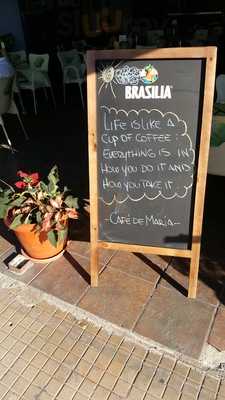 BRASILIA
LIFE IS LIKE A
CUP OF COFFEE:
EVERYTHING IS IN
HOW YOU DO IT AND
HOW YOU TAKE IT.
- CAFÉ DE MARÍA -